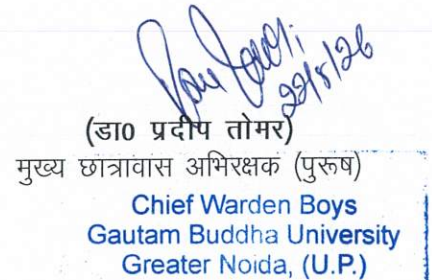 22/8/26
(डा० प्रदीप तोमर)
मुख्य छात्रावास अभिरक्षक (पुरूष)
Chief Warden Boys
Gautam Buddha University
Greater Noida, (U.P.)